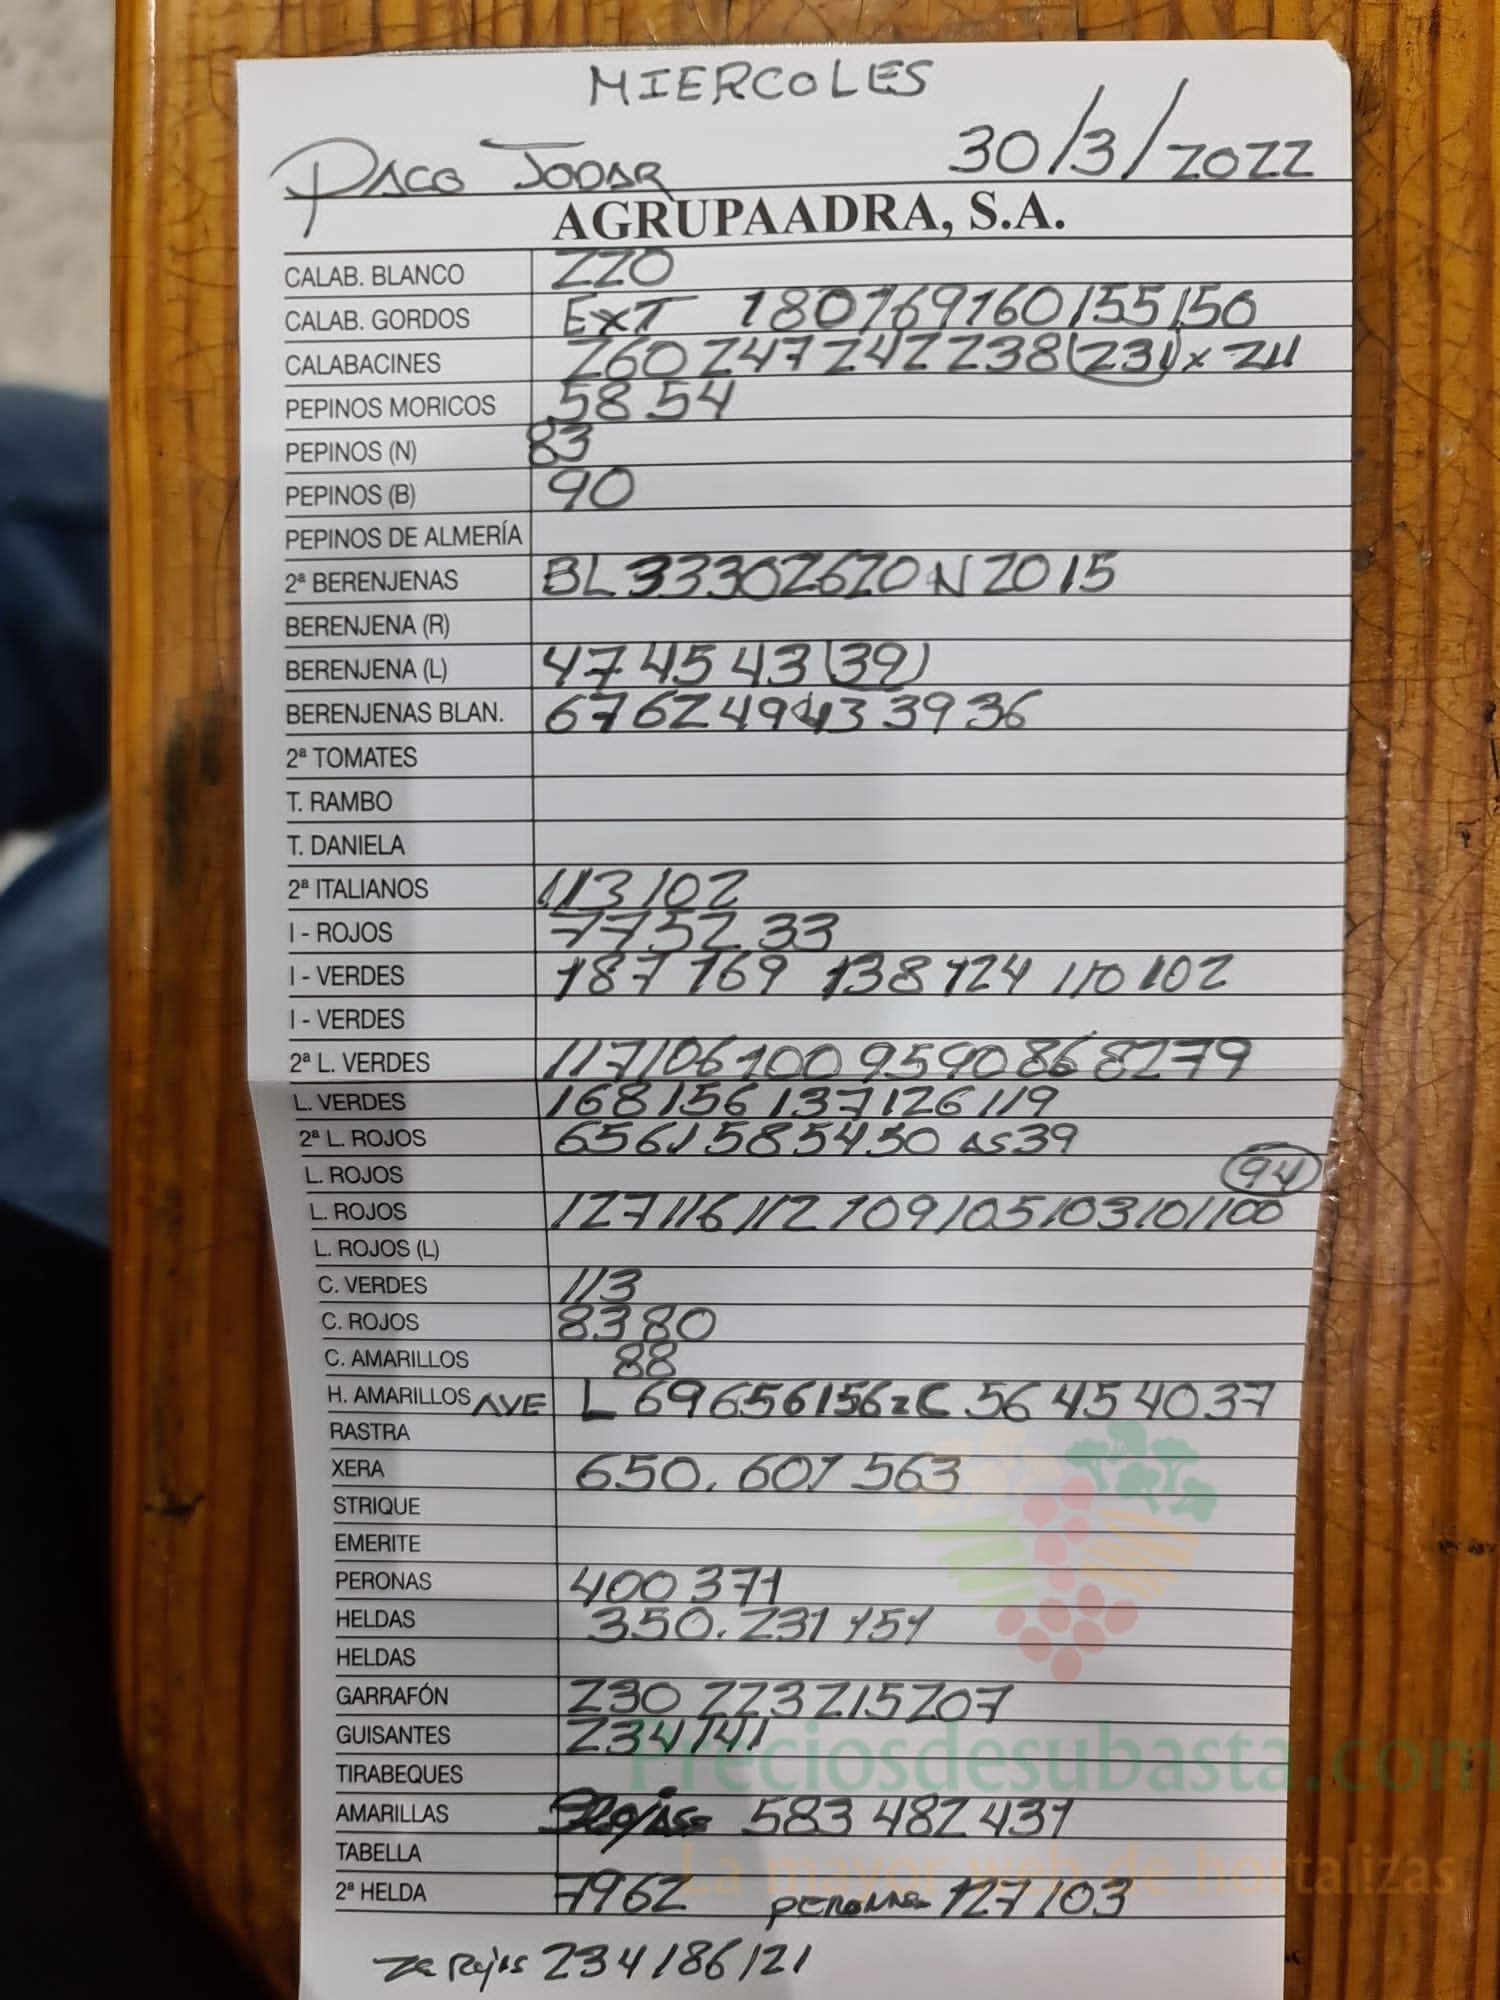 MIERCOLES
PACO JODAR 30/3/2022
AGRUPAADRA, S.A.
CALAB. BLANCO 220
CALAB. GORDOS EXT 180 169 160 155 150
CALABACINES 260 247 242 238 (231) x 211
PEPINOS MORICOS 58 54
PEPINOS (N) 83
PEPINOS (B) 90
PEPINOS DE ALMERÍA
2ª BERENJENAS BL 33 30 26 20 N 20 15
BERENJENA (R)
BERENJENA (L) 47 45 43 (39)
BERENJENAS BLAN. 67 62 49 43 39 36
2ª TOMATES
T. RAMBO
T. DANIELA
2ª ITALIANOS 113 102
I - ROJOS 77 52 33
I - VERDES 187 169 138 124 110 102
I - VERDES
2ª L. VERDES 117 106 100 95 90 86 82 79
L. VERDES 168 156 137 126 119
2ª L. ROJOS 65 61 58 54 50 AS 39
L. ROJOS (94)
L. ROJOS 127 116 112 109 105 103 101 100
L. ROJOS (L)
C. VERDES 113
C. ROJOS 83 80
C. AMARILLOS 88
H. AMARILLOS AVE L 69 65 61 56 C 56 45 40 37
RASTRA
XERA 650. 601 563
STRIQUE
EMERITE
PERONAS 400 371
HELDAS 350. 231 151
HELDAS
GARRAFÓN 230 223 215 207
GUISANTES 234 141
Preciosdesubasta.com
TIRABEQUES
AMARILLAS 583 482 431
TABELLA
La mayor web de hortalizas
2ª HELDA 79 62 PERONAS 127 103
Rojas 234 186 121